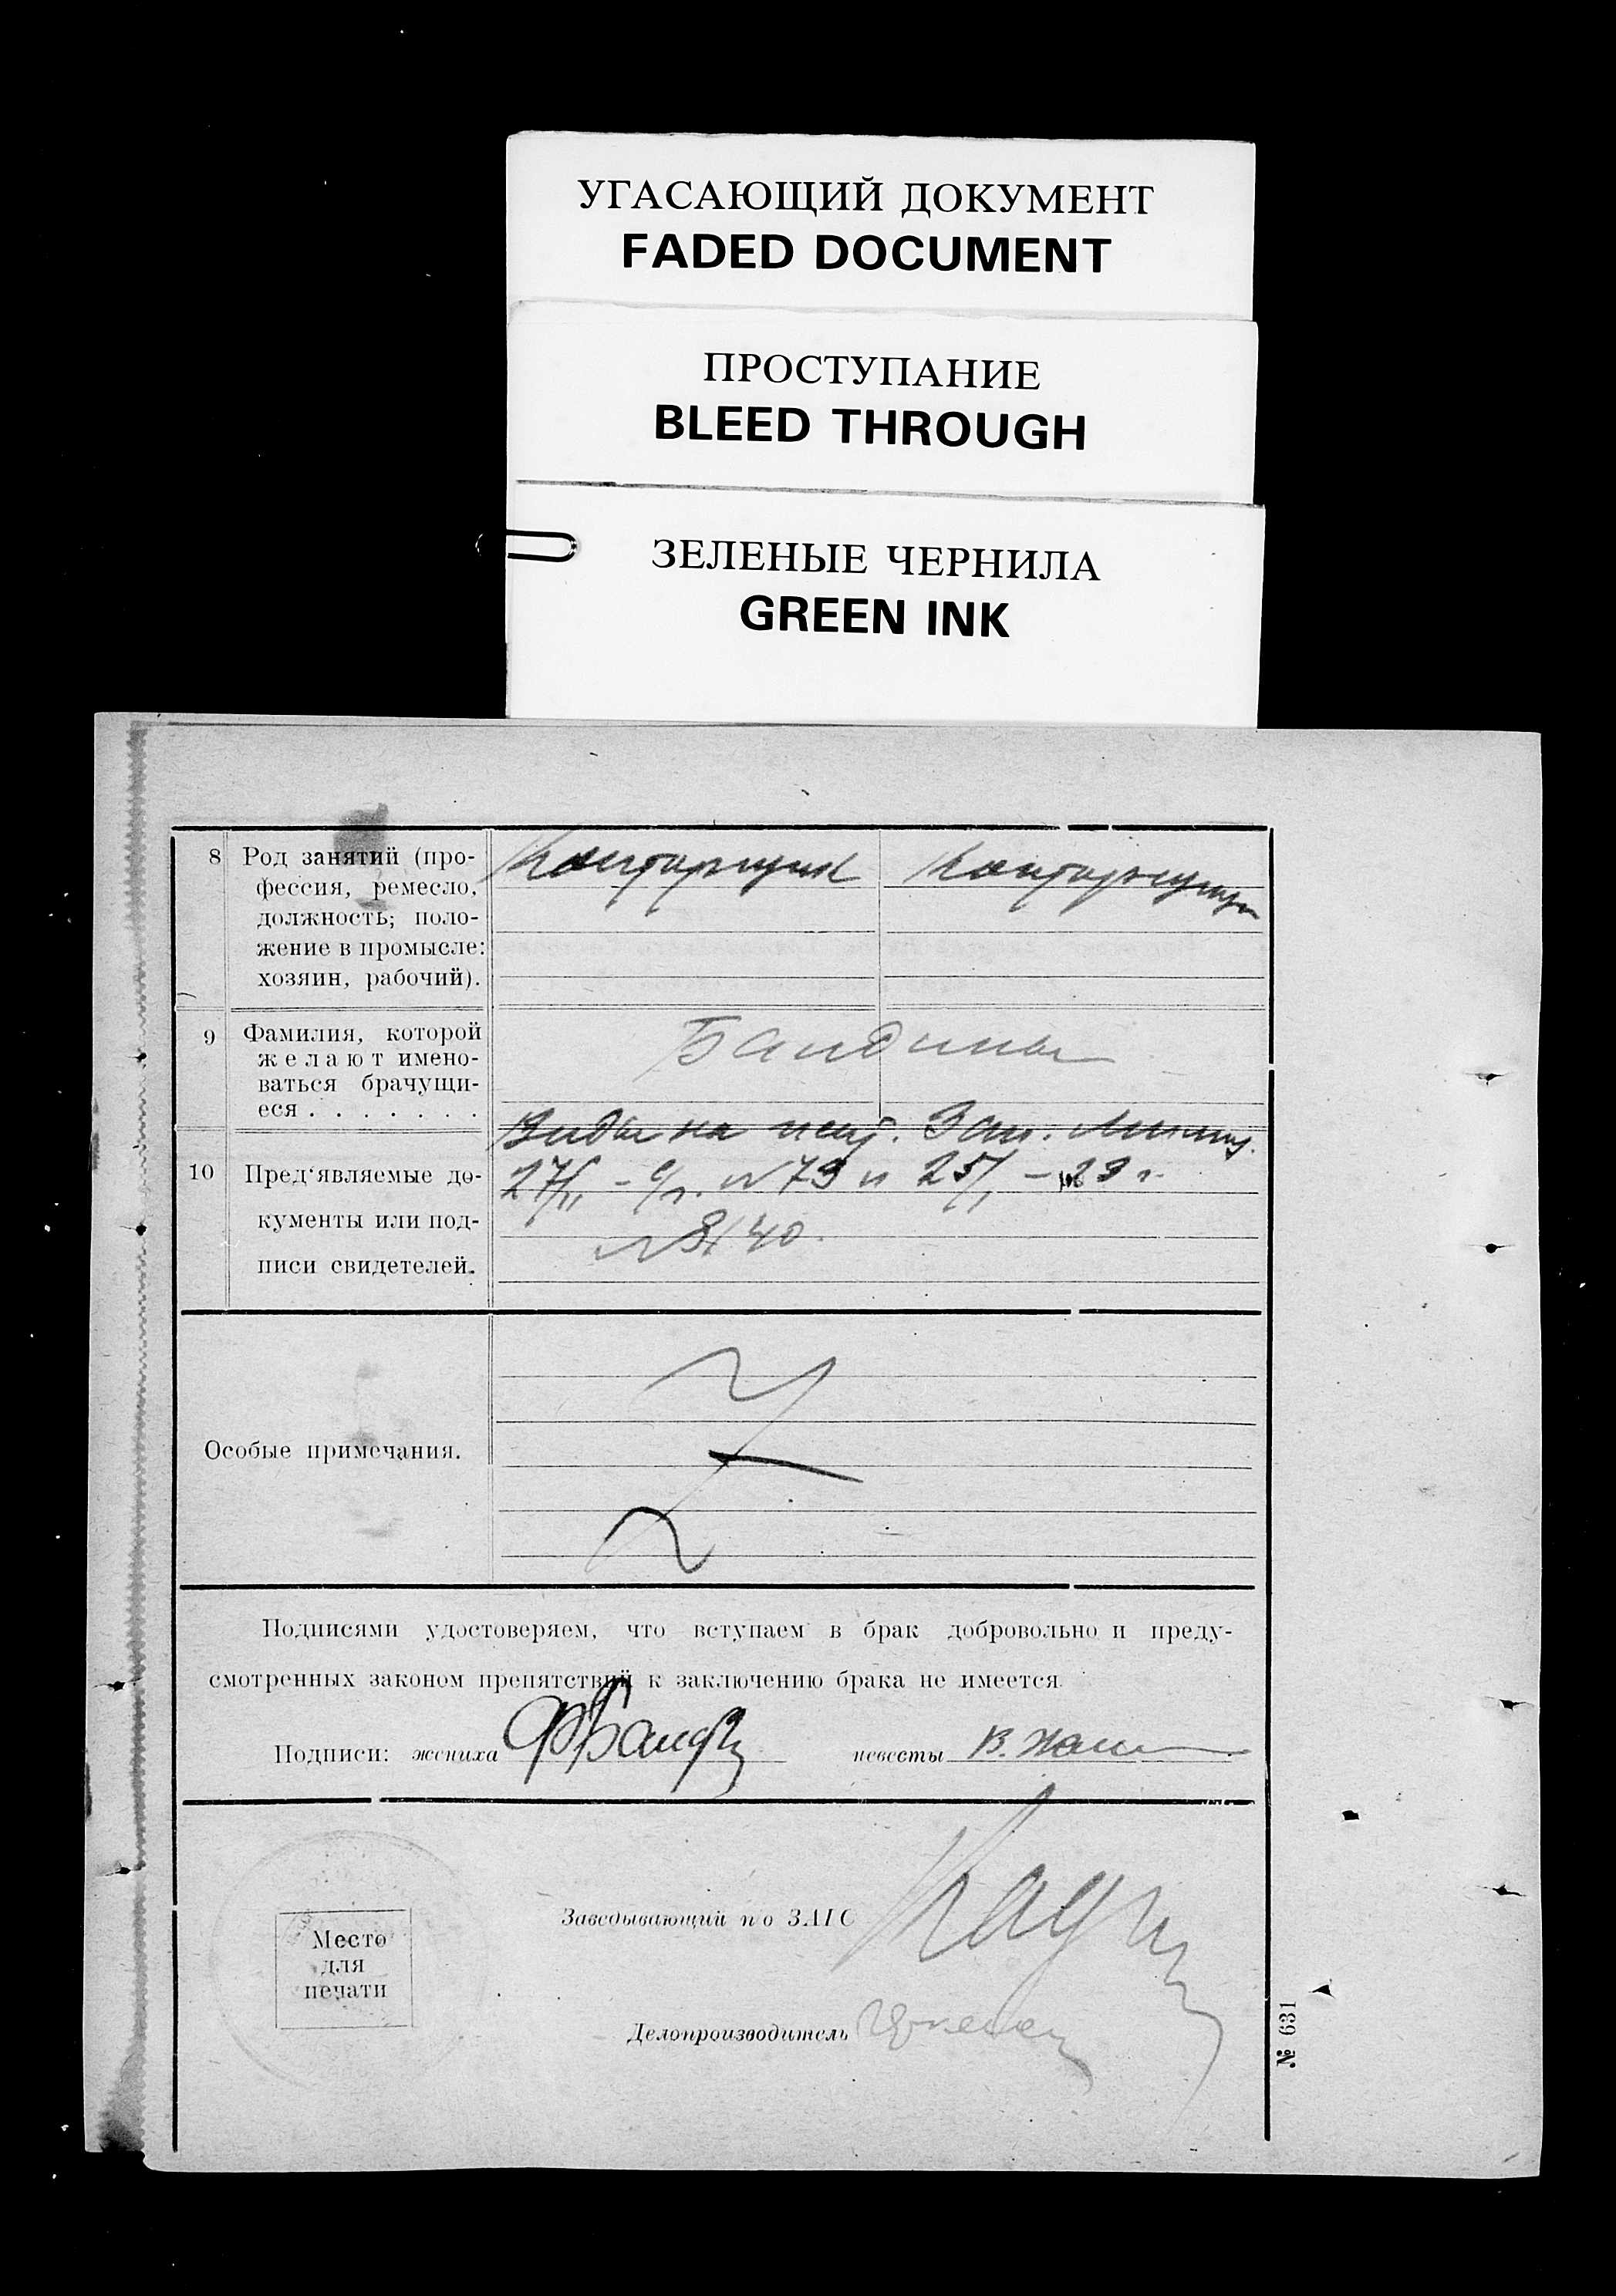 УГАСАЮЩИЙ ДОКУМЕНТ
FADED DOCUMENT
ПРОСТУПАНИЕ
BLEED THROUGH
ЗЕЛЕНЫЕ ЧЕРНИЛА
GREEN INK
8 Род занятий (про-
фессия, ремесло,
должность; поло-
жение в промысле:
хозяин, рабочий).
Конторщик
Конторщица
9 Фамилия, которой
желают имено-
ваться брачущи-
еся . . . . . . .
Бандины
10 Пред'являемые до-
кументы или под-
писи свидетелей.
Виды на
27/II - с/г. № 79 и 25/I - 29 г.
№ 8140.
Особые примечания.
Подписями удостоверяем, что вступаем в брак добровольно и преду-
смотренных законом препятствий к заключению брака не имеется.
Подписи: жениха
невесты В.
Заведывающий п/о ЗАГС
Место
для
печати
Делопроизводитель
№ 631